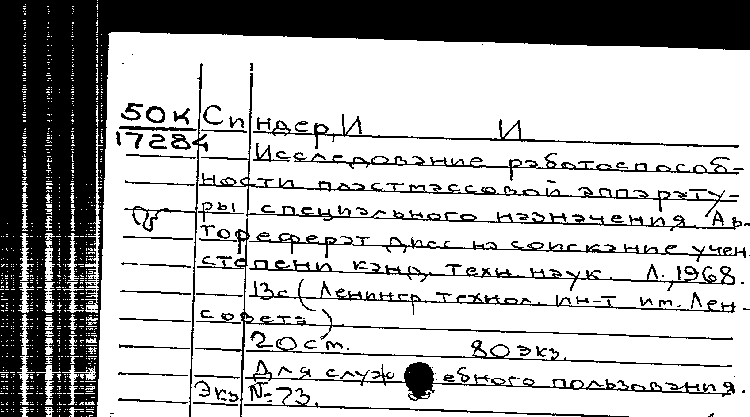 50к Спндер, И И
17284
Исследование работоспособ-
ности пластмассовой аппарату-
ры специального назначения. Ав-
тореферат дисс на соискание учен.
степени канд. техн. наук. Л., 1968.
13с (Ленингр. технол. ин-т им. Лен-
совета).
20 см. 80 экз.
Для служебного пользования.
Экз №73.